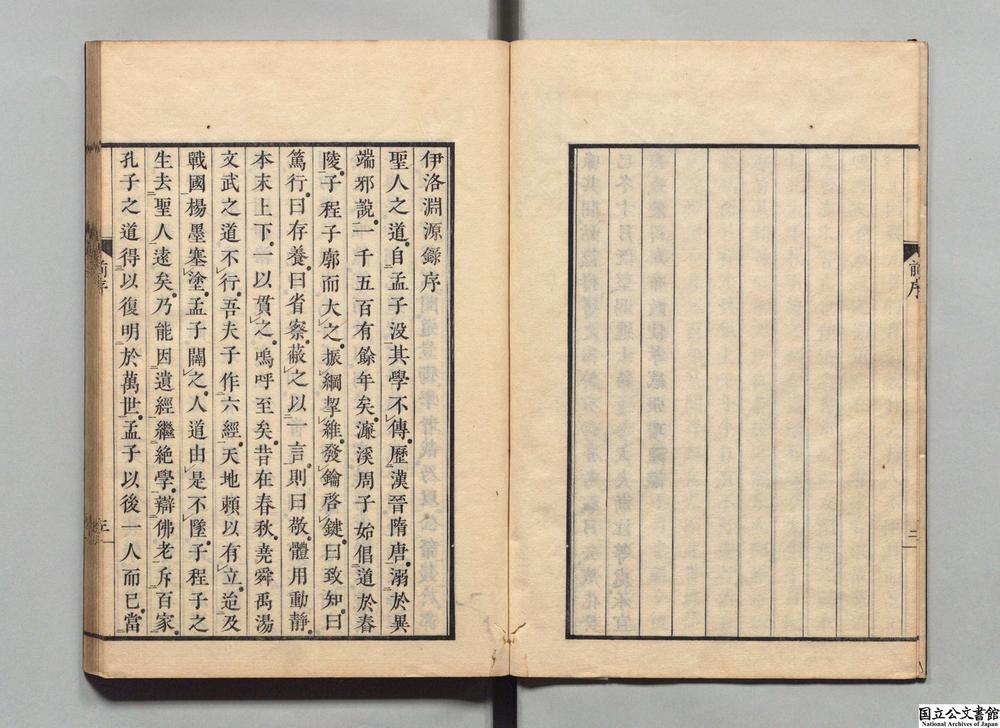 前序
三
伊洛淵源錄序
聖人之道自孟子没其學不傳歷漢晉隋唐溺於異
端邪說一千五百有餘年矣濂溪周子始倡道於舂
陵子程子廓而大之振綱挈維發鑰啓鍵曰致知曰
篤行曰存養曰省察蔽之以一言則曰敬體用動靜
本末上下一以貫之嗚呼至矣昔在春秋堯舜禹湯
文武之道不行吾夫子作六經天地賴以有立迨及
戰國楊墨塞塗孟子闢之人道由是不墜子程子之
生去聖人遠矣乃能因遺經繼絶學辯佛老斥百家
孔子之道得以復明於萬世孟子以後一人而已當
前序
国立公文書館
National Archives of Japan